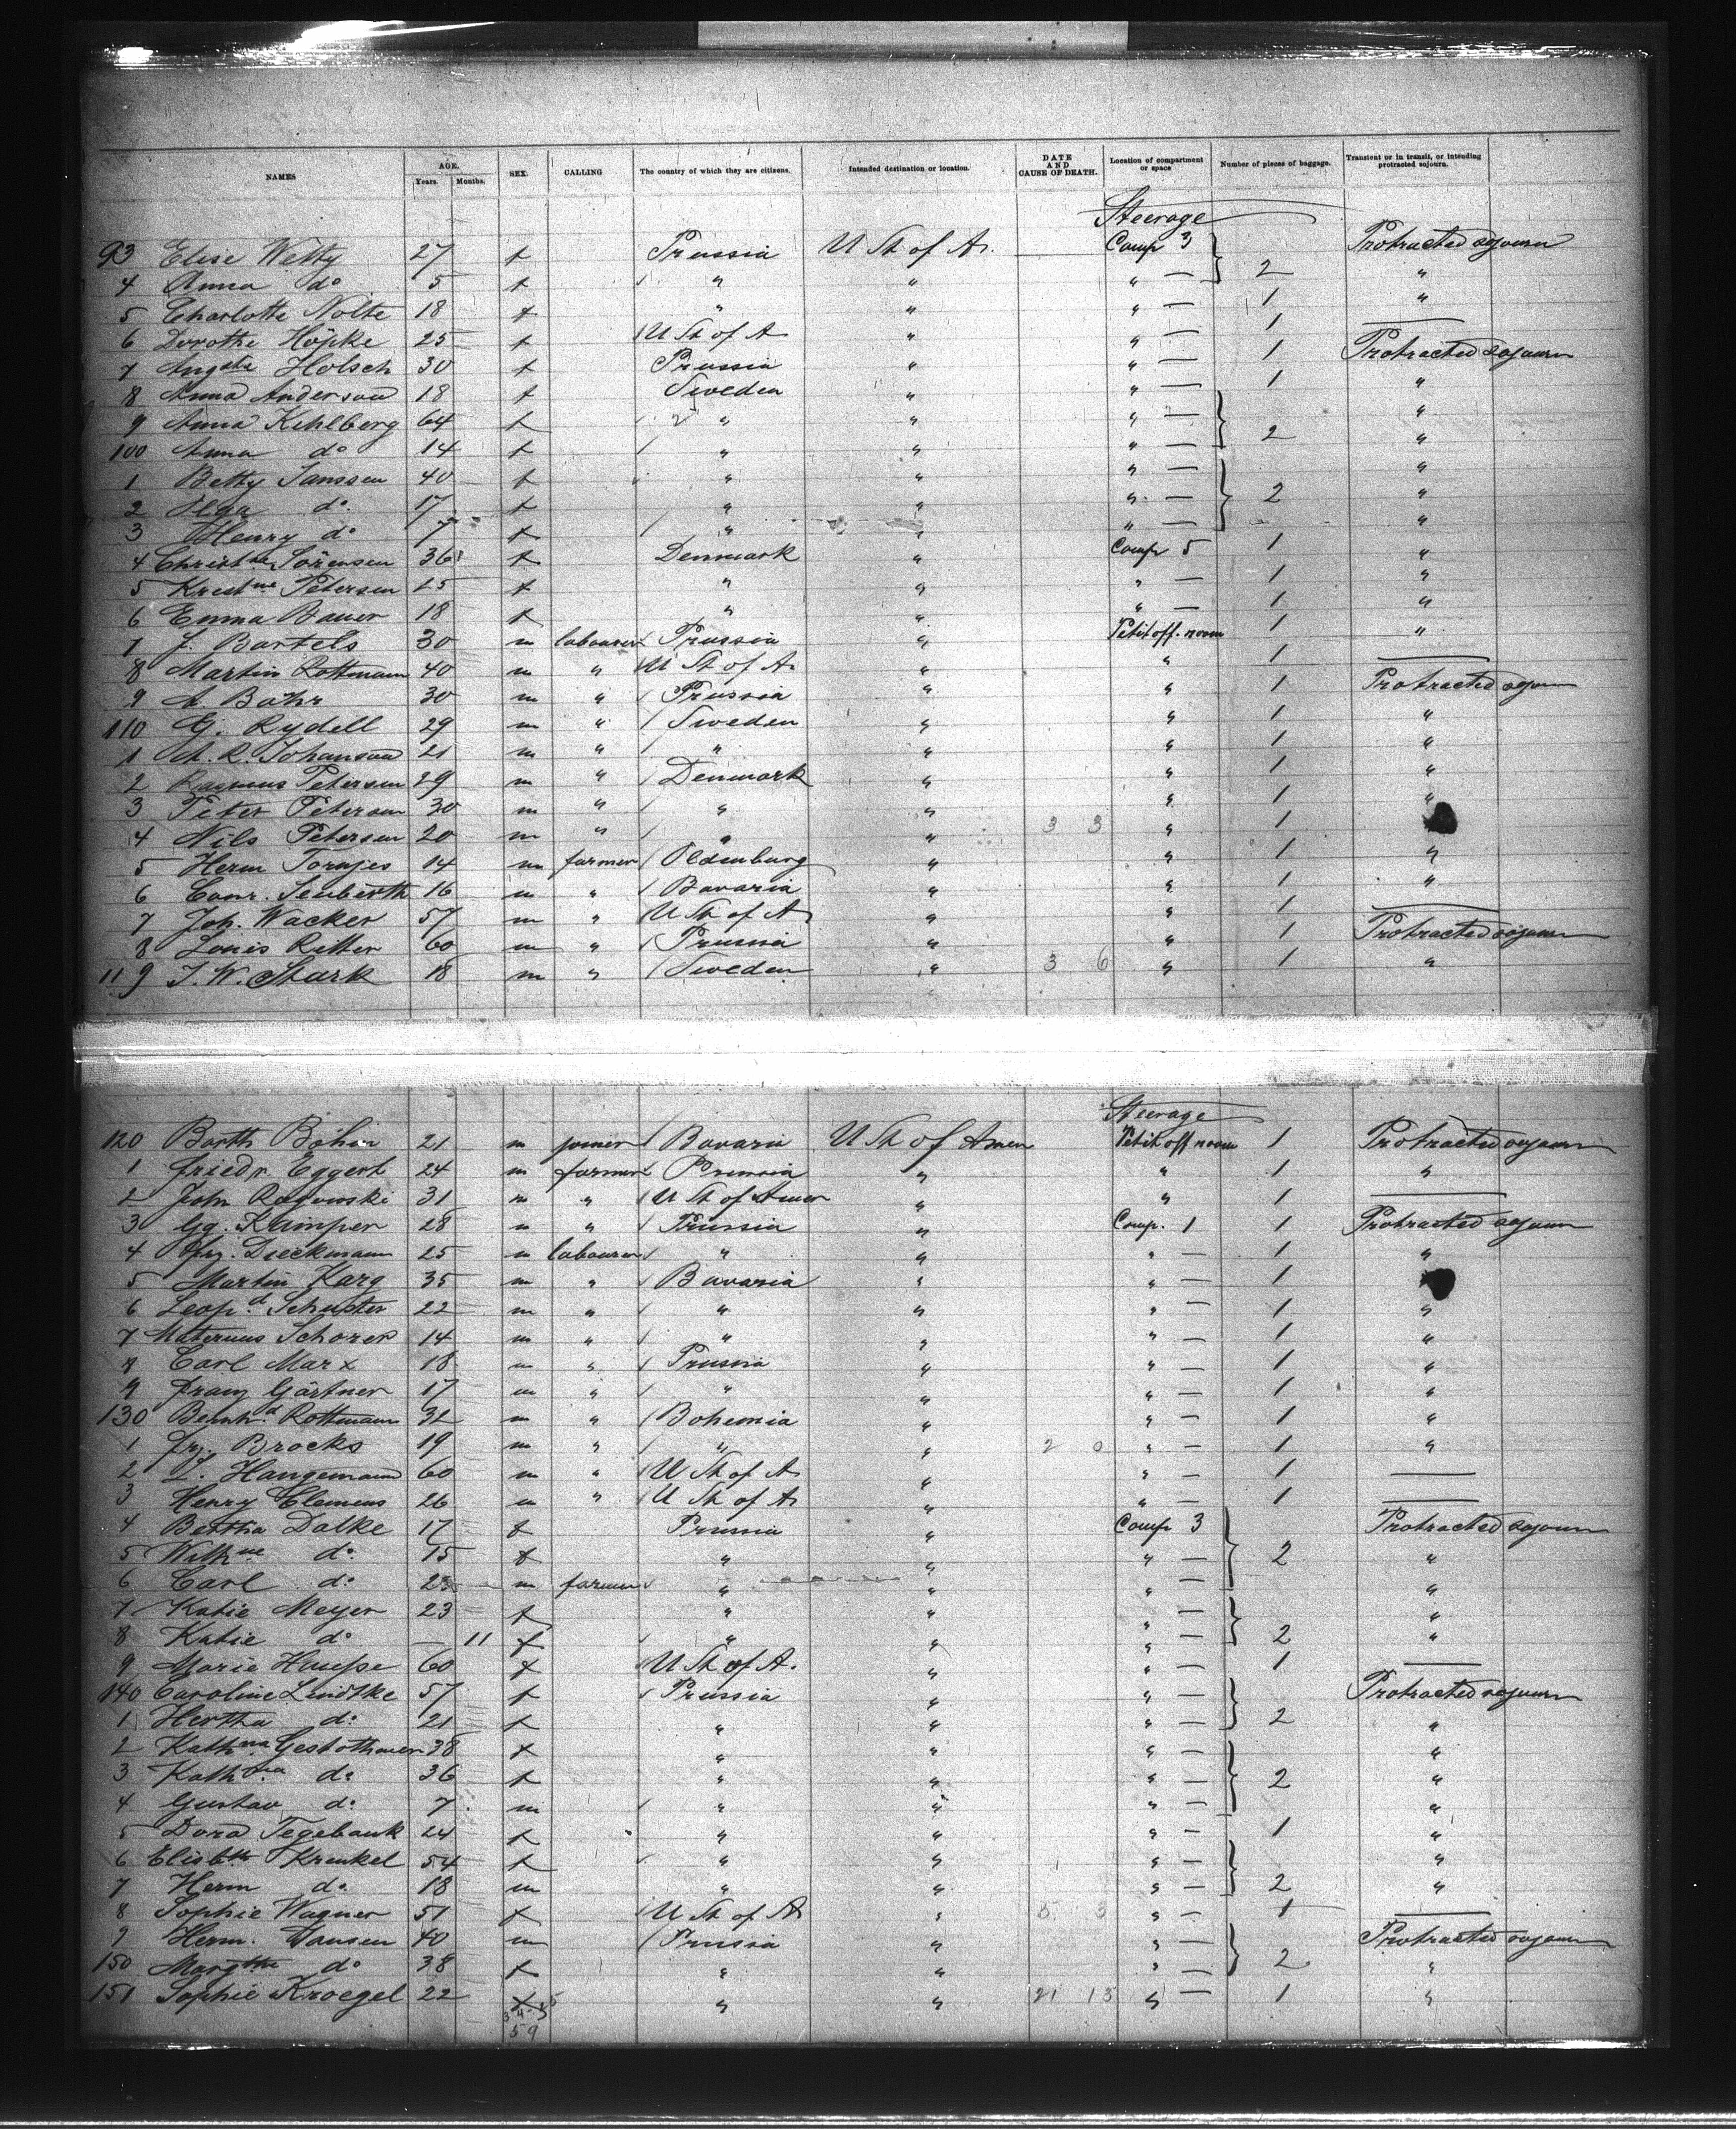 NAMES AGE. Years. Months. SEX. CALLING The country of which they are citizens. Intended destination or location. DATE AND CAUSE OF DEATH. Location of compartment or space Number of pieces of baggage. Transient or in transit, or intending protracted sojourn.
Steerage
93 Elise Welty 27 f Prussia U St of A. Comp 3 Protracted sojourn
4 Anna do 5 f " " " — 2 "
5 Charlotte Nolte 18 f " " " — 1 "
6 Dorothe Höpke 25 f U St of A " " — 1 —
7 Augste Holsch 30 f Prussia " " — 1 Protracted sojourn
8 Anna Anderson 18 f Sweden " " — 1 "
9 Anna Kihlberg 64 f " " " — "
100 Anna do 14 f " " " — 2 "
1 Betty Janssen 40 f " " " — "
2 Olga do 17 f " " " — 2 "
3 Henry do 7 f " " " — "
4 Christne Sörensen 36 f Denmark " Comp 5 1 "
5 Krestne Petersen 25 f " " " — 1 "
6 Emma Bauer 18 f " " " — 1 "
7 J. Bartels 30 m labourer Prussia " Petit off. room 1 "
8 Martin Rottmann 40 m " U St of A. " " 1 —
9 A. Bähr 30 m " Prussia " " 1 Protracted sojourn
110 G. Rydell 29 m " Sweden " " 1 "
1 A. R. Johanson 21 m " " " " 1 "
2 Rasmus Petersen 29 m " Denmark " " 1 "
3 Peter Petersen 30 m " " " " 1 "
4 Nils Petersen 20 m " " " 3 3 " 1
5 Herm Tornjes 14 m farmer Oldenburg " " 1 "
6 Conr. Seuberth 16 m " Bavaria " " 1 "
7 Joh. Wacker 57 m " U St of A " " 1 —
8 Louis Ritter 60 m " Prussia " " 1 Protracted sojourn
119 J. W. Stark 18 m " Sweden " 3 6 " 1 "
Steerage
120 Barth Böhm 21 m joiner Bavaria U St of Amer Petit off room 1 Protracted sojourn
1 Friedr Eggert 24 m farmer Prussia " " 1 "
2 John Ragowski 31 m " U St of Amer " " 1 —
3 Gg. Krimper 28 m " Prussia " Comp. 1 1 Protracted sojourn
4 Frz. Dieckmann 25 m labourer " " " — 1 "
5 Martin Karg 35 m " Bavaria " " — 1
6 Leopd Schuster 22 m " " " " — 1 "
7 Maternus Schorer 14 m " " " " — 1 "
8 Carl Marx 18 m " Prussia " " — 1 "
9 Franz Gärtner 17 m " " " " — 1 "
130 Bernhd Rottmann 32 m " Bohemia " " — 1 "
1 Frz. Brocks 19 m " " " 2 0 " — 1 "
2 L. Hangemann 60 m " U St of A " " — 1 —
3 Henry Clemens 26 m " U St of A " " — 1 —
4 Bertha Dalke 17 f Prussia " Comp 3 Protracted sojourn
5 Wilhne do 15 f " " " — 2 "
6 Carl do 23 m farmer " " " — "
7 Katie Meyer 23 f " " " — "
8 Katie do — 11 f " " " — 2 "
9 Marie Haupe 60 f U St of A. " " — 1 —
140 Caroline Lindtke 57 f Prussia " " — Protracted sojourn
1 Hertha do 21 f " " " — 2 "
2 Kathna Gestothauer 38 f " " " — "
3 Kathna do 36 f " " " — 2 "
4 Gustav do 7 m " " " — "
5 Dora Tegebauk 24 f " " " — 1 "
6 Elisbth Krenkel 54 f " " " — "
7 Herm do 18 m " " " — 2 "
8 Sophie Wagner 51 f U St of A " 5 3 " — 1 —
9 Herm. Jansen 40 m Prussia " " — Protracted sojourn
150 Margthe do 38 f " " " — 2 "
151 Sophie Kroegel 22 f " " 21 13 " — 1 "
59